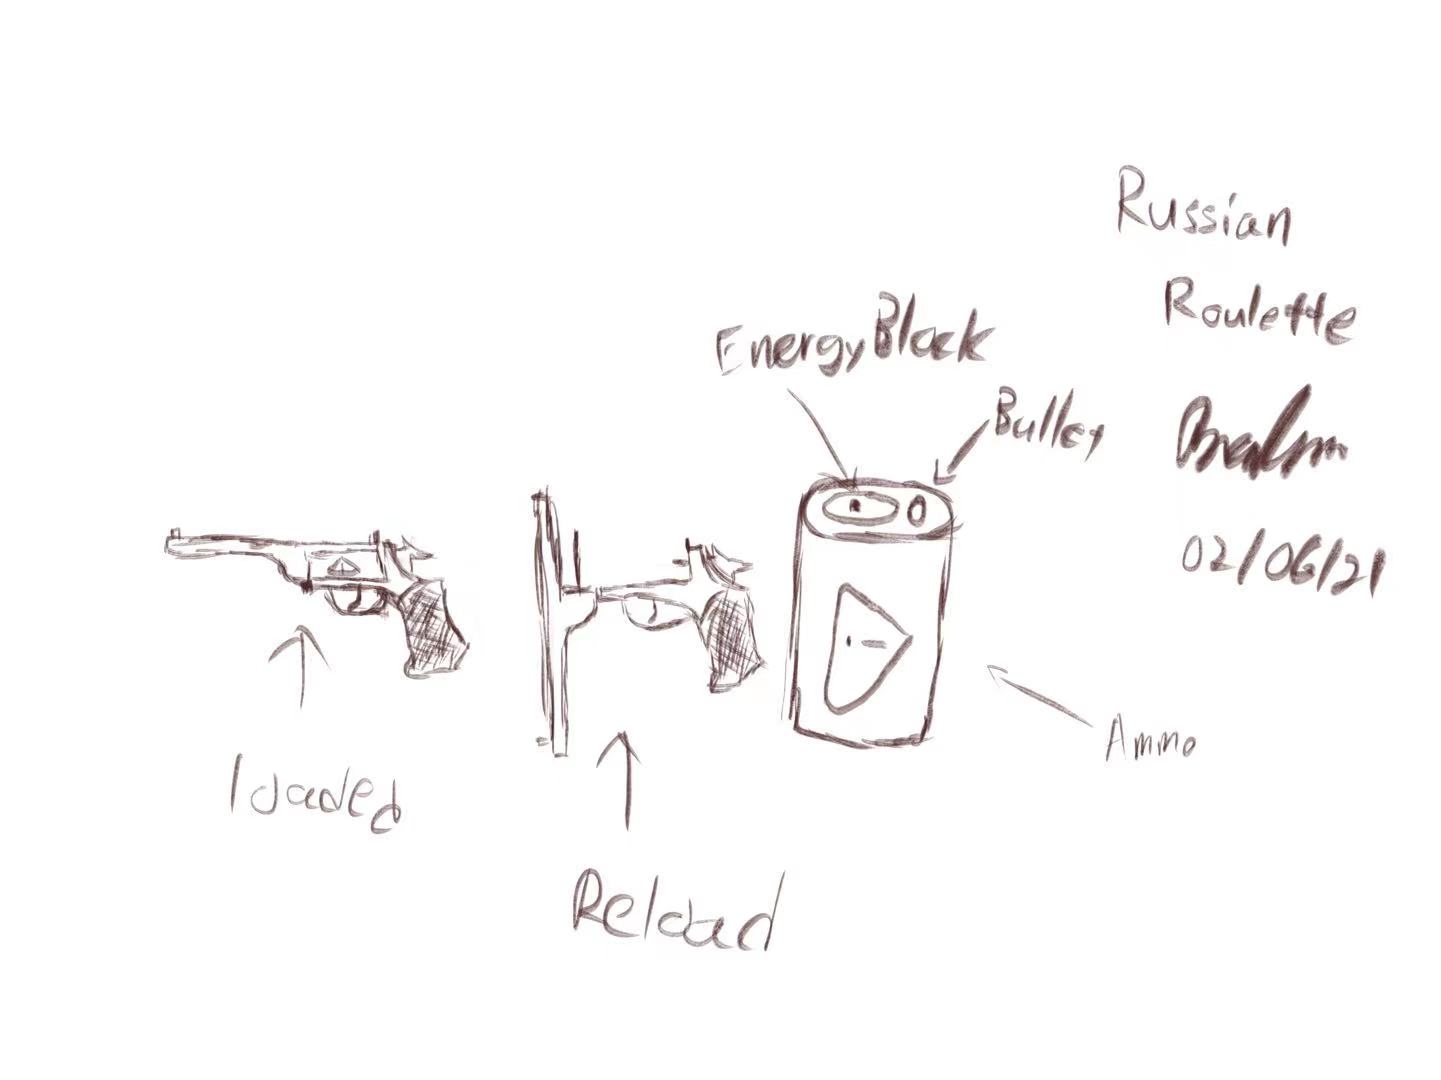 Russian
Roulette
02/06/21
EnergyBlock
Bullet
Ammo
loaded
Reload